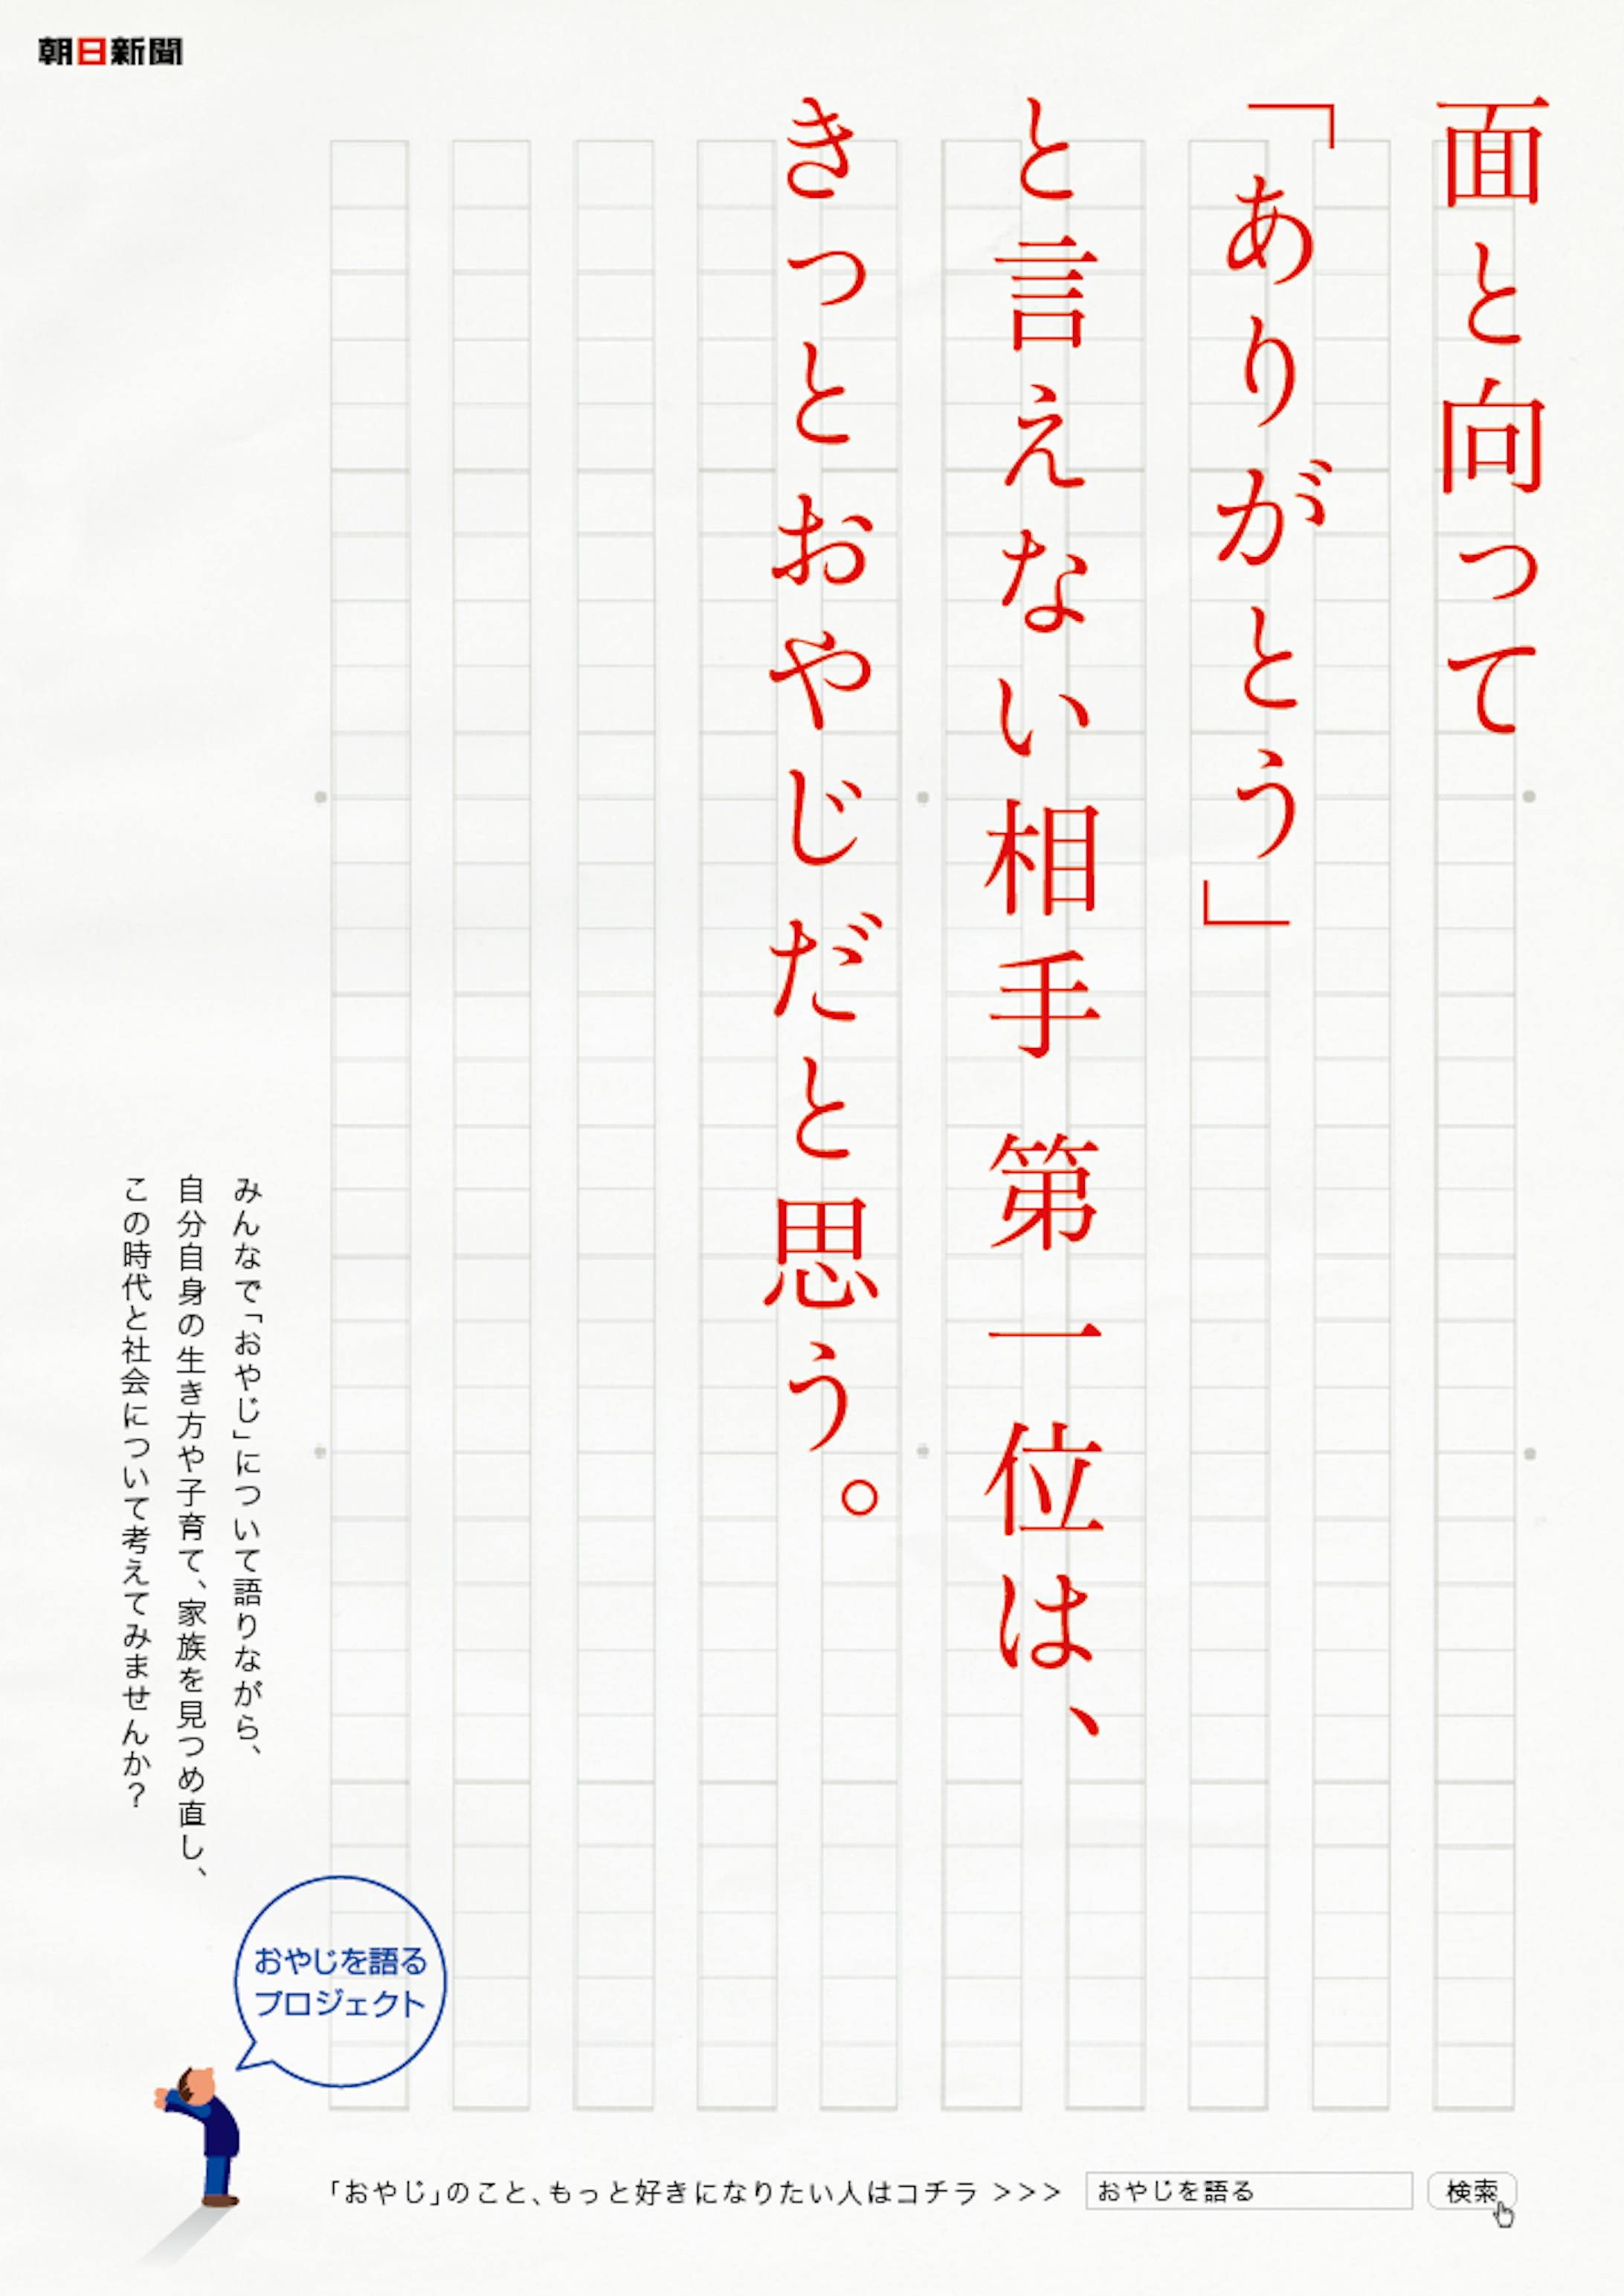 朝日新聞
面と向って
「ありがとう」
と言えない相手 第一位は、
きっとおやじだと思う。
みんなで「おやじ」について語りながら、
自分自身の生き方や子育て、家族を見つめ直し、
この時代と社会について考えてみませんか?
おやじを語る
プロジェクト
「おやじ」のこと、もっと好きになりたい人はコチラ >>> おやじを語る 検索